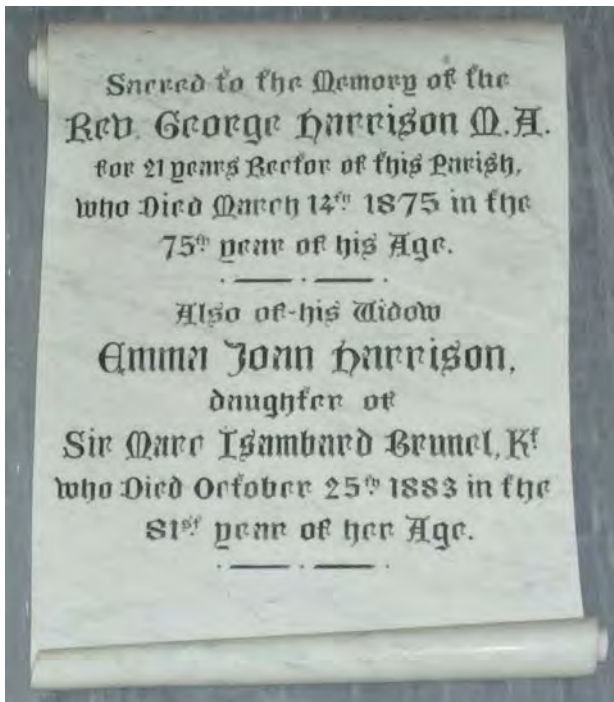 Sacred to the Memory of the
Rev. George Harrison M.A.
for 21 years Rector of this Parish,
who Died March 14th 1875 in the
75th year of his Age.
Also of his Widow
Emma Joan Harrison,
daughter of
Sir Marc Isambard Brunel, Kt
who Died October 25th 1883 in the
81st year of her Age.